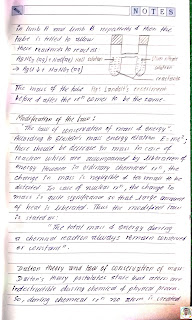 NOTES
In limb A and limb B separately & then the
tube is tilted to allow
their reactants to react as
AgNO3 (aq) + NaCl(aq)
→ AgCl ↓ + NaNO3 (aq)
The mass of the tube
before & after the rxn comes to be the same.
Modification of the law:
"The law of conservation of mass & energy"
According to Einstein's mass energy relation E = mc2.
there should be decrease in mass in case of
reaction which are accompanied by liberation of
energy. However in ordinary chemical rxn, the
change in mass is negligible
detected. In case of nuclear rxn, the change in
mass is quite significance so that large amount
of heat is liberated. Thus the modified law
is stated as:
"The total mass & energy during
a chemical reaction always remains conserved
or constant".
Dalton theory and law of conservation of mass
Dalton's theory postulates state that atoms are
indestructible during chemical & physical process.
So, during chemical rxn no atom is created